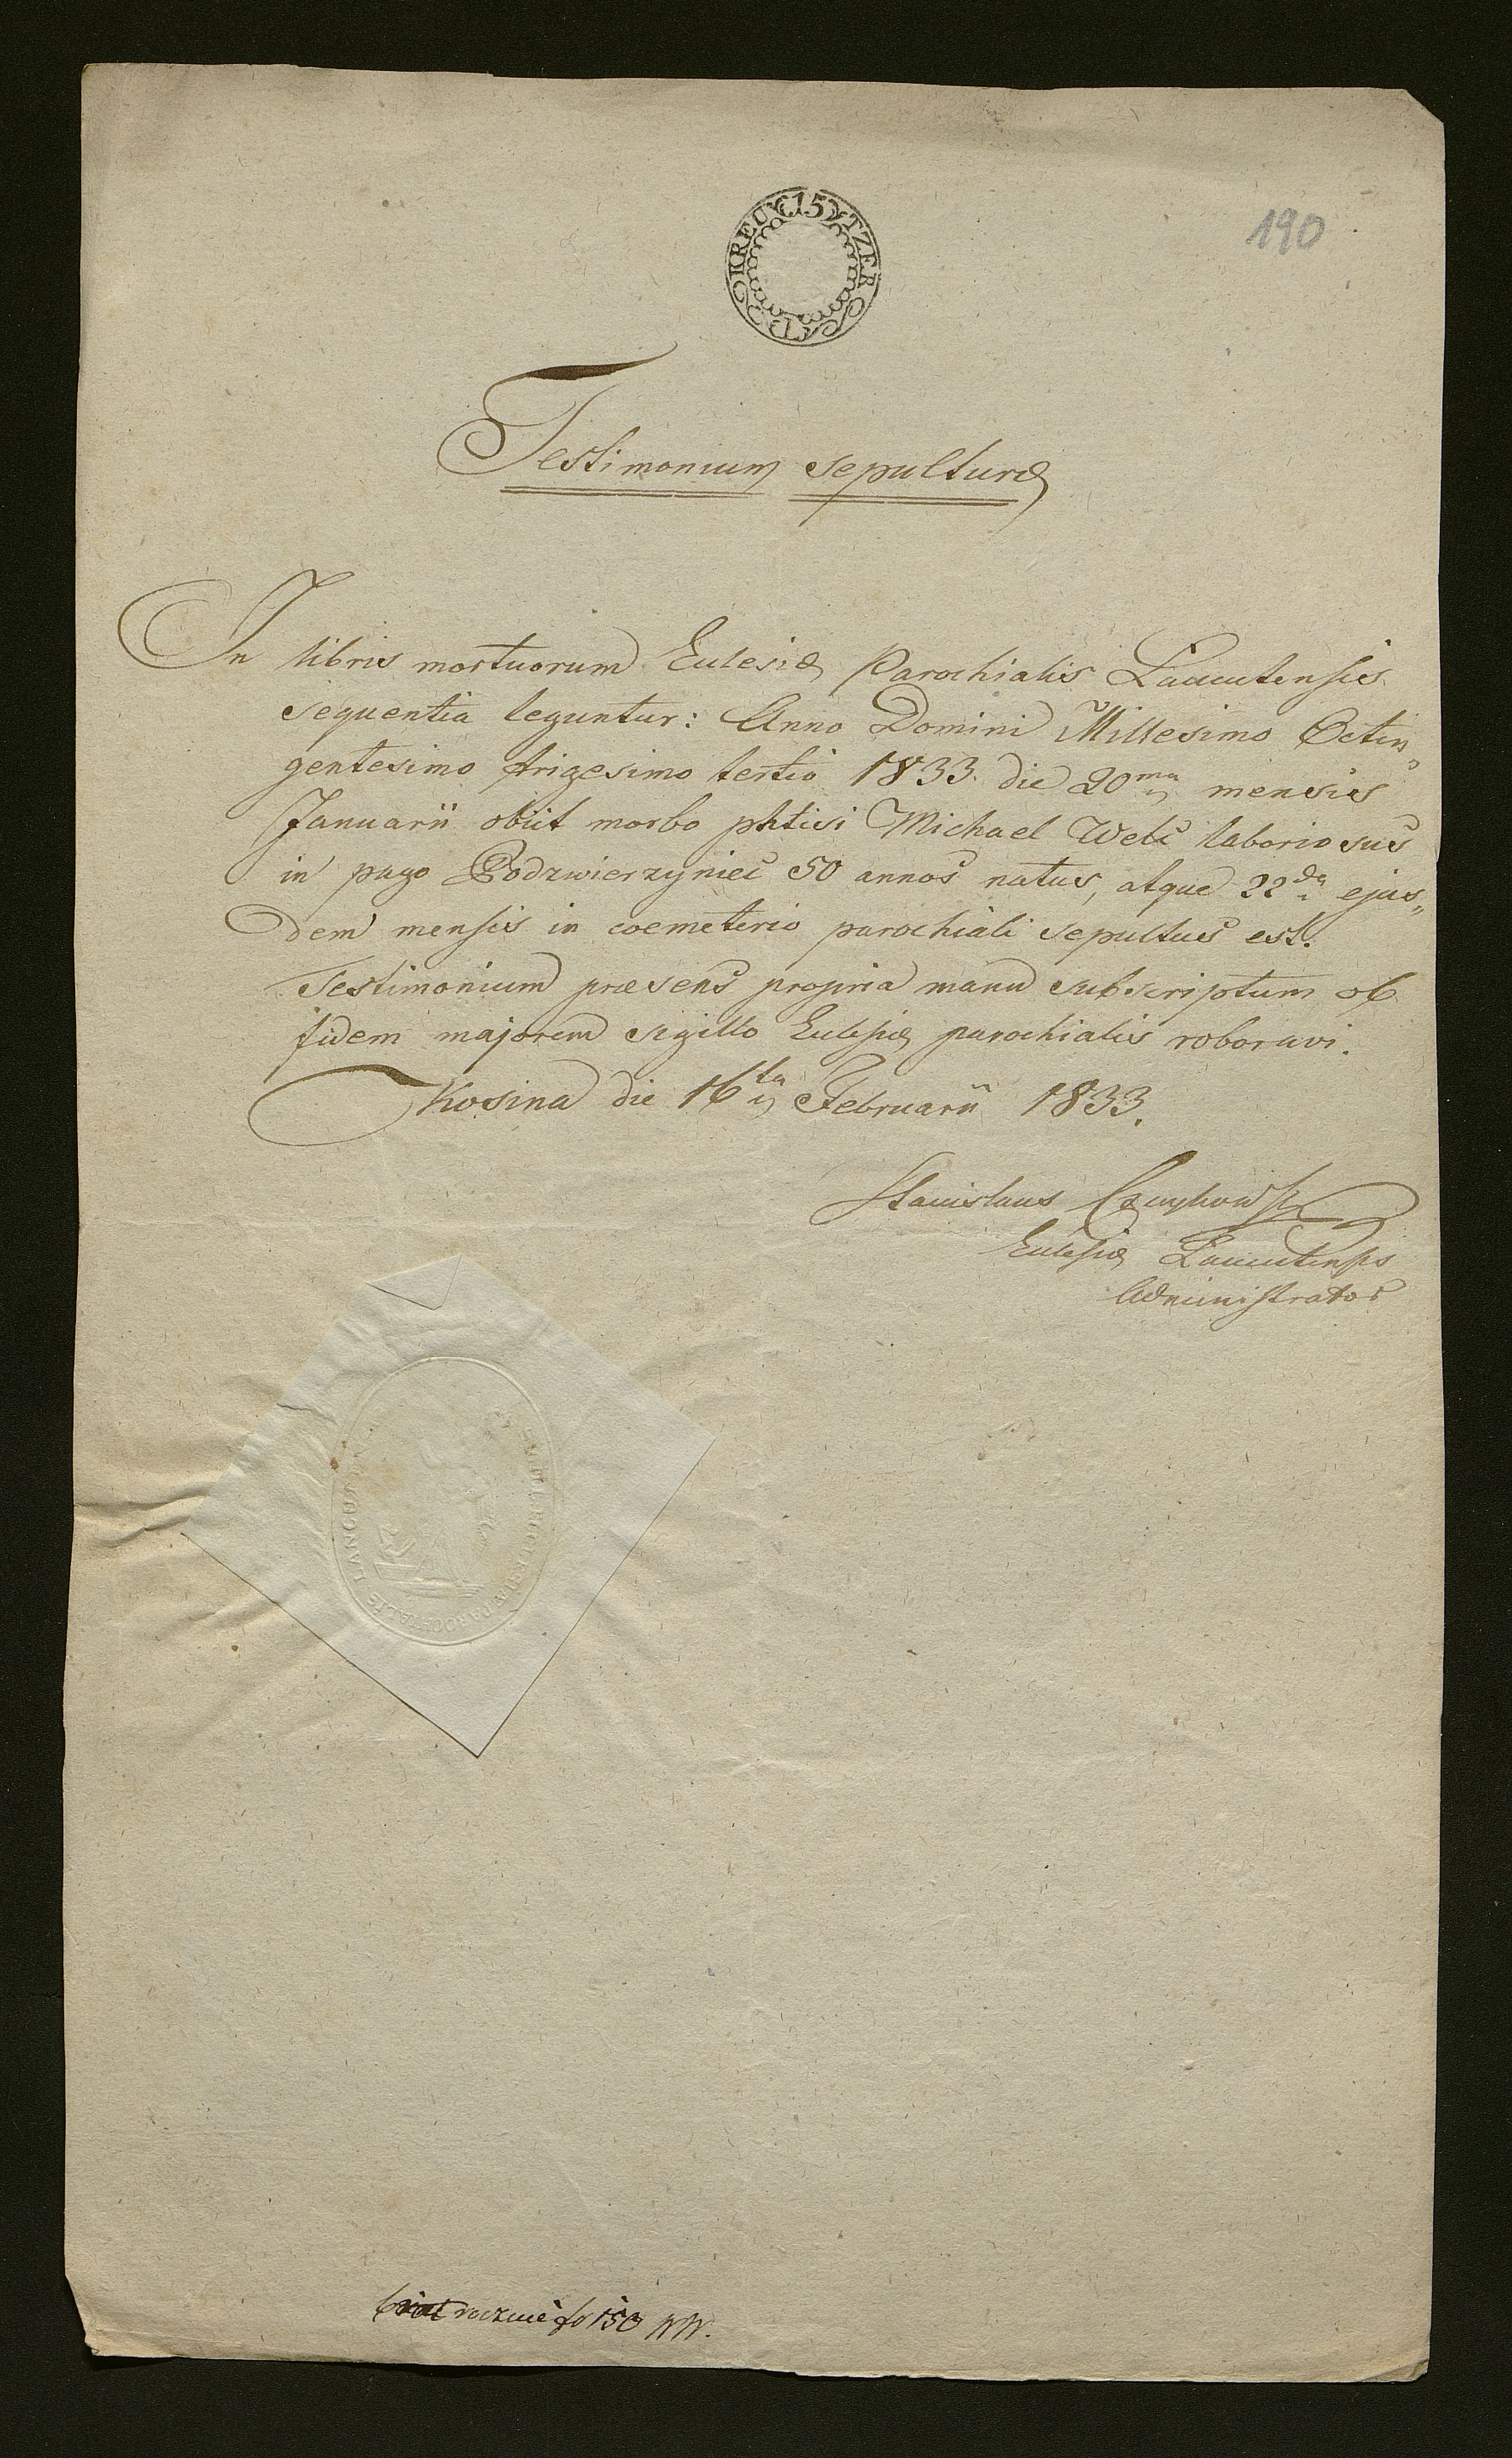 15 KREUTZER
190
Testimonium sepulturæ
In libris mortuorum Eclesiæ Parochialis Lancutensis
sequentia leguntur: Anno Domini Millesimo Octin„
gentesimo trigesimo tertio 1833 die 20ma mensis
Januarii obiit morbo phtisi Michael Welc laboriosus
in pago Podzwierzyniec 50 annos natus, atque 22da ejus„
dem mensis in coemeterio parochiali sepultus est.
Testimonium præsens propria manu subscriptum ob
fidem majorem sigillo Eclesiæ parochialis roboravi.
Kosina die 16ta Februarii 1833.
Stanislaus
Eclesiæ Lancutensis
Administrator
ECCLESIÆ PAROCHIALIS
rocznie fo 150 WW.